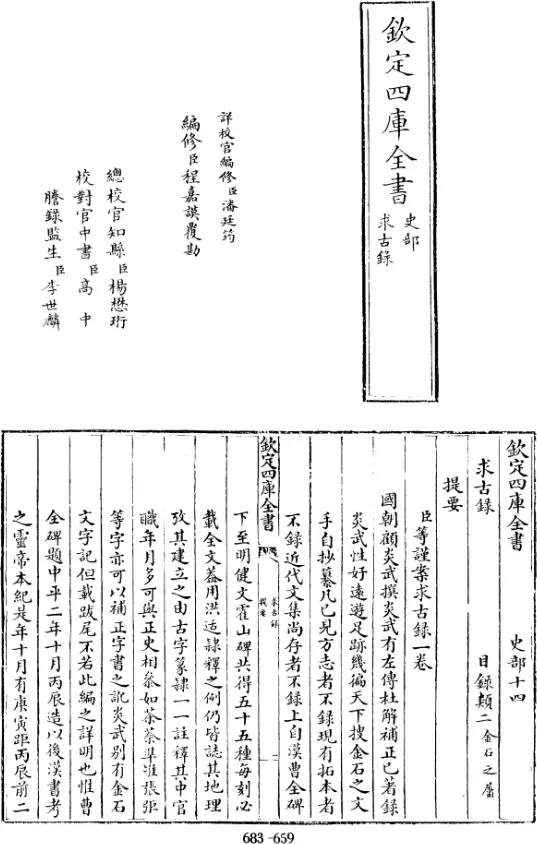 欽定四庫全書
史部
求古錄
詳校官編修臣潘廷筠
編修臣程嘉謨覆勘
總校官知縣臣楊懋珩
校對官中書臣高中
謄錄監生臣李世麟
欽定四庫全書 史部十四
求古錄 目錄類二金石之屬
提要
臣等謹案求古錄一卷
國朝顧炎武撰炎武有左傳杜解補正已著錄
炎武性好遠遊足跡幾徧天下搜金石之文
手自抄纂凡已見方志者不錄現有拓本者
不錄近代文集尚存者不錄上自漢曹全碑
欽定四庫全書
求古錄
提要
一
下至明建文霍山碑共得五十五種每刻必
載全文葢用洪适隸釋之例仍皆誌其地理
攷其建立之由古字篆隸一一註釋其中官
職年月多可與正史相叅如茶荼準淮張弡
等字亦可以補正字書之訛炎武別有金石
文字記但載跋尾不若此編之詳明也惟曹
全碑題中平二年十月丙辰造以後漢書考
之靈帝本紀是年十月有庚寅距丙辰前二
683-659